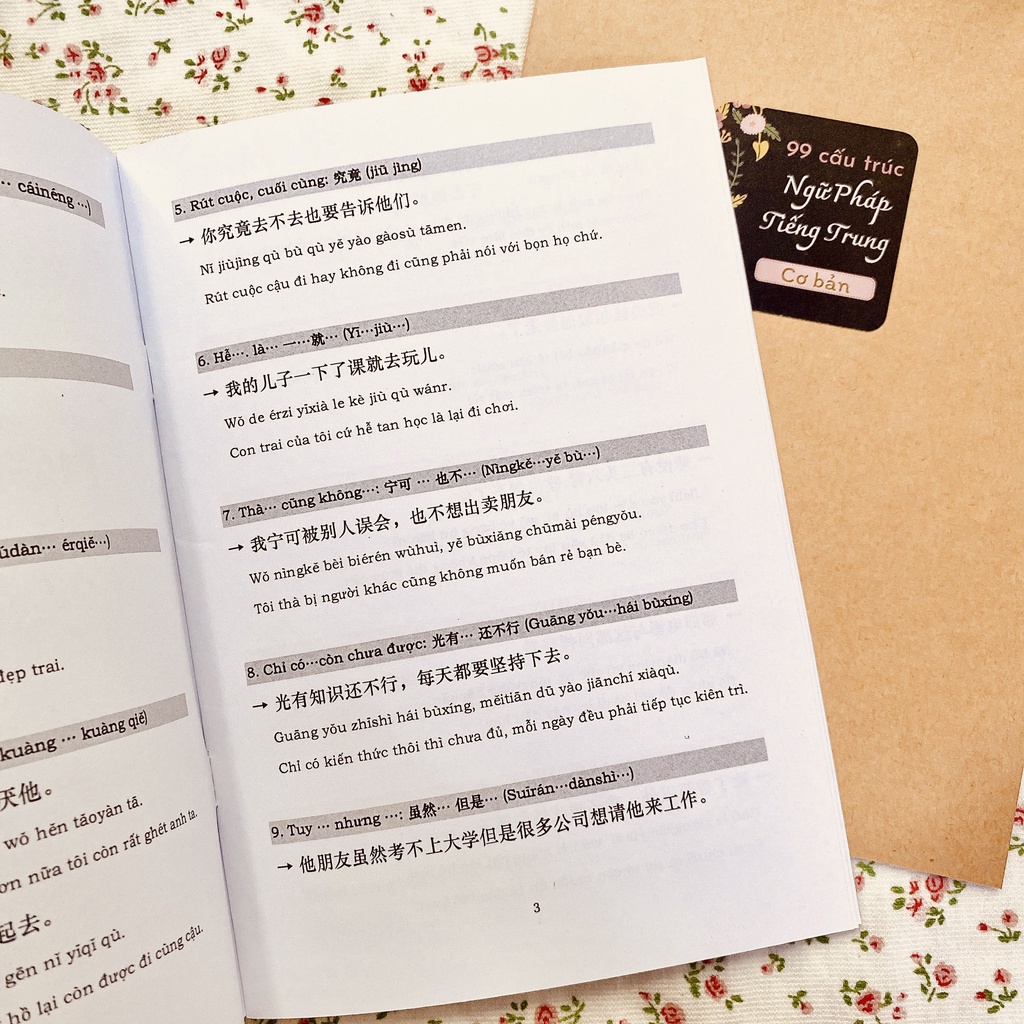 … cáinéng …)
ūdàn… érqiě…)
đẹp trai.
kuàng … kuàng qiě)
天他。
wǒ hěn tǎoyàn tā.
ơn nữa tôi còn rất ghét anh ta.
起去。
gēn nǐ yīqǐ qù.
hồ lại còn được đi cùng cậu.
5. Rút cuộc, cuối cùng: 究竟 (jiū jìng)
→ 你究竟去不去也要告诉他们。
Nǐ jiùjìng qù bù qù yě yào gàosù tāmen.
Rút cuộc cậu đi hay không đi cũng phải nói với bọn họ chứ.
6. Hễ…. là… 一…就… (Yī…jiù…)
→ 我的儿子一下了课就去玩儿。
Wǒ de érzi yīxià le kè jiù qù wánr.
Con trai của tôi cứ hễ tan học là lại đi chơi.
7. Thà… cũng không…: 宁可 … 也不… (Nìngkě…yě bù…)
→ 我宁可被别人误会，也不想出卖朋友。
Wǒ nìngkě bèi biérén wùhuì, yě bùxiǎng chūmài péngyǒu.
Tôi thà bị người khác cũng không muốn bán rẻ bạn bè.
8. Chỉ có…còn chưa được: 光有… 还不行 (Guāng yǒu…hái bùxíng)
→ 光有知识还不行，每天都要坚持下去。
Guāng yǒu zhīshì hái bùxíng, měitiān dū yào jiānchí xiàqù.
Chỉ có kiến thức thôi thì chưa đủ, mỗi ngày đều phải tiếp tục kiên trì.
9. Tuy … nhưng …: 虽然… 但是… (Suīrán…dànshì…)
→ 他朋友虽然考不上大学但是很多公司想请他来工作。
3
99 cấu trúc
Ngữ Pháp
Tiếng Trung
Cơ bản